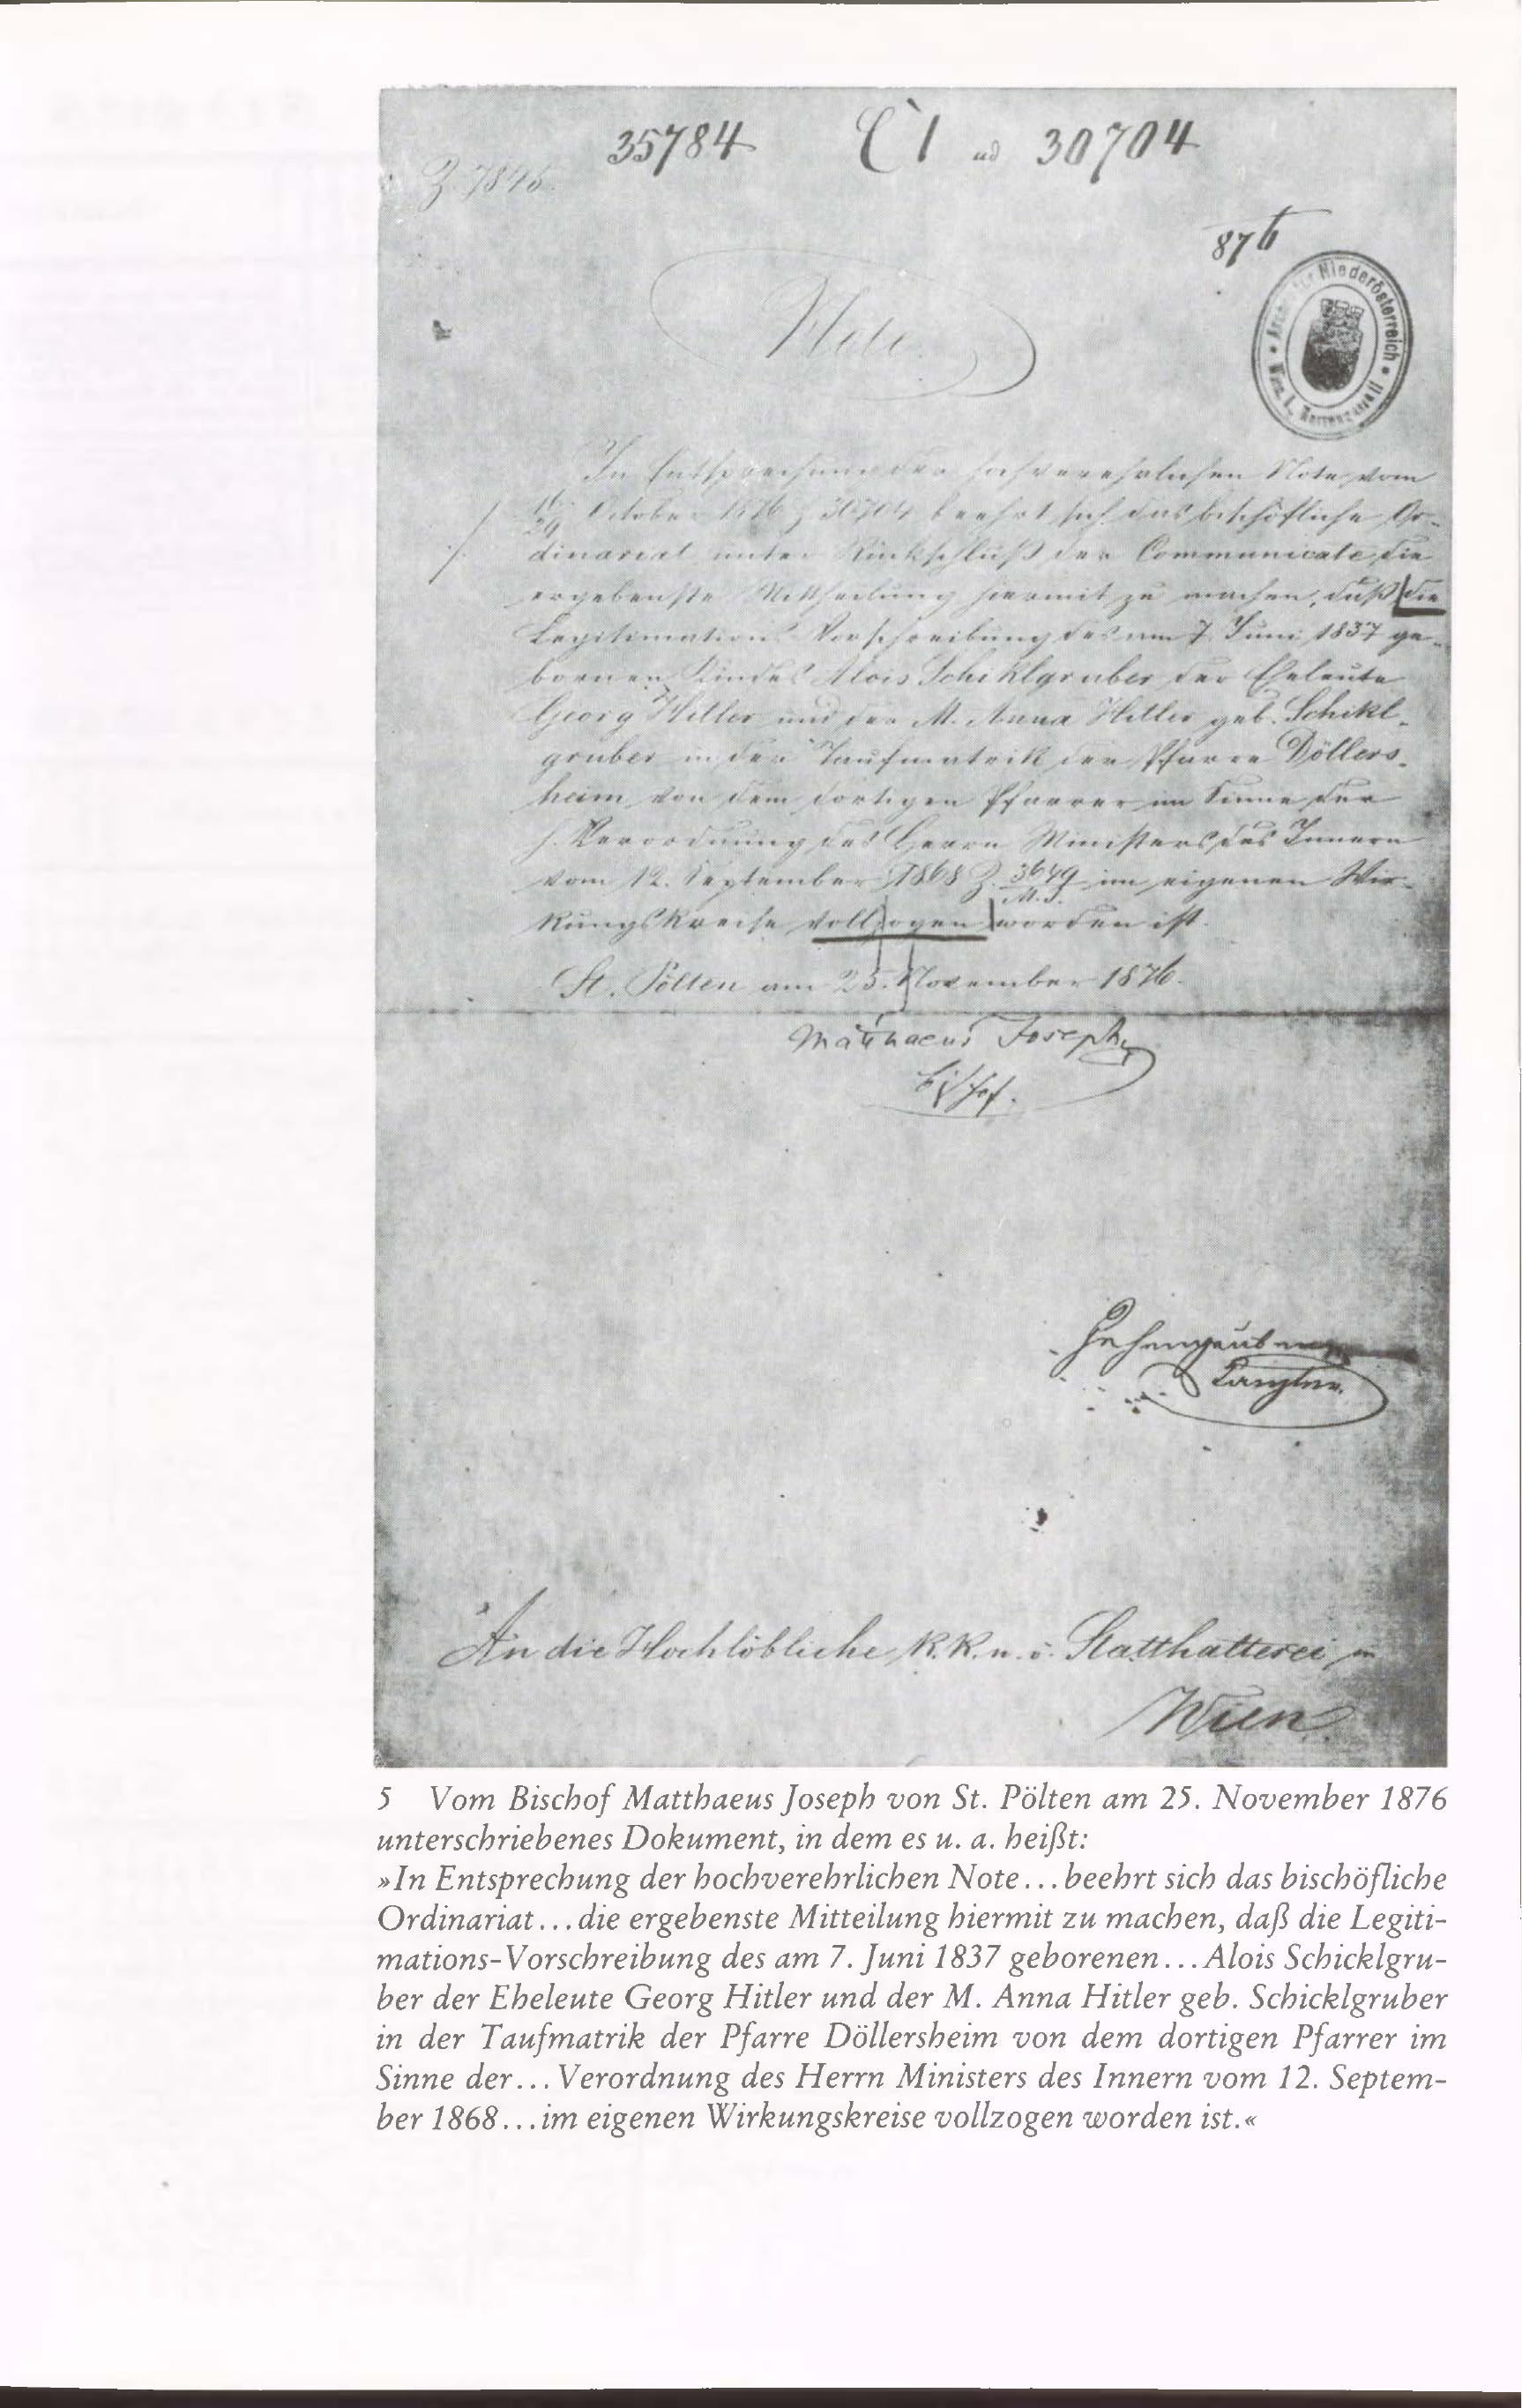 35784 C 1 ad 30704
Z. 7846.
876
Archiv für Niederösterreich
Wien I, Herrengasse 11
Note.
In Entsprechung der hochverehrlichen Note vom
October 1876 Z 30704 beehrt sich das bischöfliche Or-
dinariat unter Rückschluß der Communicate die
ergebenste Mittheilung hiermit zu machen, daß die
Legitimations Vorschreibung des am 7. Juni 1837 ge-
bornen Kindes Alois Schiklgruber der Eheleute
Georg Hitler und der M. Anna Hitler geb. Schikl-
gruber in der Taufmatrik der Pfarre Döllers-
heim von dem dortigen Pfarrer im Sinne der
h. Verordnung des Herrn Ministers des Innern
vom 12. September 1868 Z. 3649 im eigenen Wir-
M. I.
kungskreise vollzogen worden ist.
St. Pölten am 25. November 1876.
Matthaeus Joseph
Bischof.
Kanzler.
An die Hochlöbliche K. K. n. ö. Statthalterei in
Wien
5 Vom Bischof Matthaeus Joseph von St. Pölten am 25. November 1876
unterschriebenes Dokument, in dem es u. a. heißt:
»In Entsprechung der hochverehrlichen Note...beehrt sich das bischöfliche
Ordinariat...die ergebenste Mitteilung hiermit zu machen, daß die Legiti-
mations-Vorschreibung des am 7. Juni 1837 geborenen...Alois Schicklgru-
ber der Eheleute Georg Hitler und der M. Anna Hitler geb. Schicklgruber
in der Taufmatrik der Pfarre Döllersheim von dem dortigen Pfarrer im
Sinne der...Verordnung des Herrn Ministers des Innern vom 12. Septem-
ber 1868...im eigenen Wirkungskreise vollzogen worden ist.«